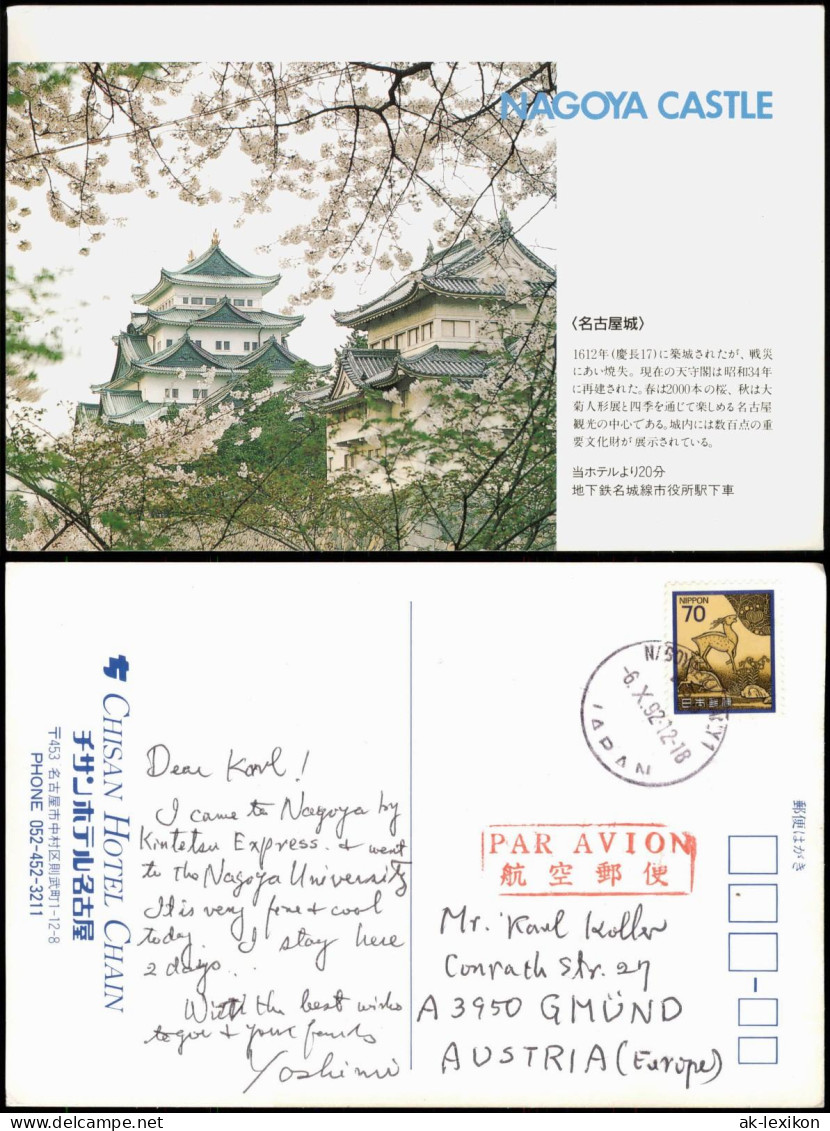 NAGOYA CASTLE
〈名古屋城〉
1612年(慶長17)に築城されたが、戦災
にあい焼失。現在の天守閣は昭和34年
に再建された。春は2000本の桜、秋は大
菊人形展と四季を通じて楽しめる名古屋
観光の中心である。城内には数百点の重
要文化財が展示されている。
当ホテルより20分
地下鉄名城線市役所駅下車
CHISAN HOTEL CHAIN
チサンホテル名古屋
〒453 名古屋市中村区則武町1-12-8
PHONE 052-452-3211
Dear Karl!
I came to Nagoya by
Kintetsu Express. & went
to the Nagoya University
It is very fine & cool
today. I stay here
2 days..
With the best wishes
to you & your family
Yoshimi
NIPPON
70
日本郵便
-6.X.92.12-18
JAPAN
PAR AVION
航空郵便
郵便はがき
Mr. Karl Koller
Conrath Str. 27
A 3950 GMÜND
AUSTRIA (Europe)
© ansichtskarten-lexikon.de
ak-lexikon.com